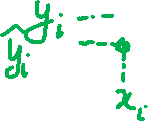 y_i
ŷ_i
x_i